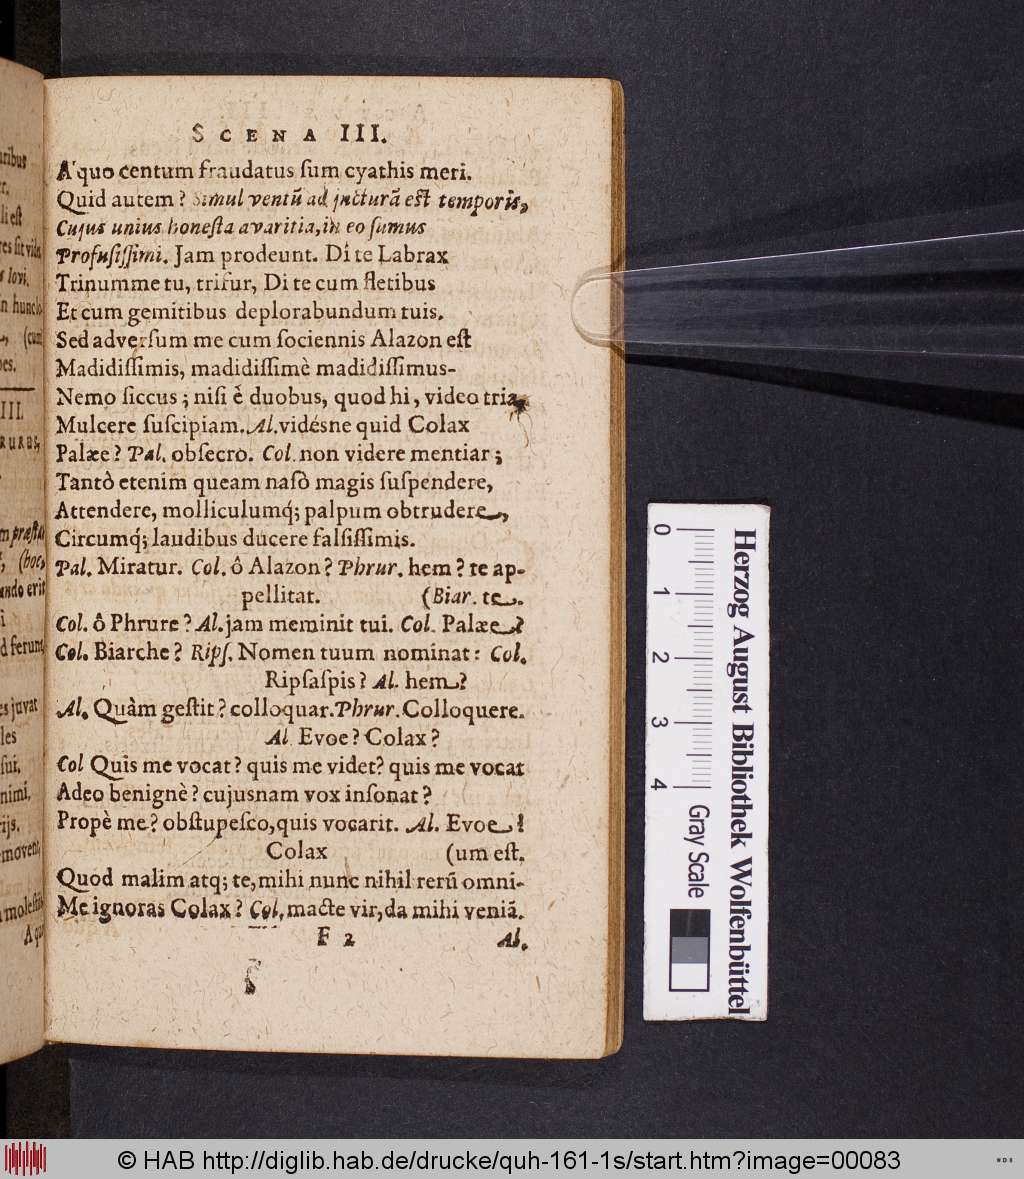 SCENA III.
A quo centum fraudatus ſum cyathis meri.
Quid autem? Simul ventũ ad jncturã eſt temporis,
Cujus unius honeſta avaritia, in eo ſumus
Profuſiſſimi. Jam prodeunt. Di te Labrax
Trinumme tu, trifur, Di te cum fletibus
Et cum gemitibus deplorabundum tuis.
Sed adverſum me cum ſociennis Alazon eſt
Madidiſſimis, madidiſſimè madidiſſimus-
Nemo ſiccus; niſi è duobus, quod hi, video tria
Mulcere ſuſcipiam. Al. vidésne quid Colax
Palæe? Pal. obſecrò. Col. non videre mentiar;
Tantò etenim queam naſò magis ſuſpendere,
Attendere, molliculumq́; palpum obtrudere,
Circumq́; laudibus ducere falſiſſimis.
Pal. Miratur. Col. ô Alazon? Phrur. hem? te ap-
pellitat. (Biar. te.
Col. ô Phrure? Al. jam meminit tui. Col. Palæe?
Col. Biarche? Ripſ. Nomen tuum nominat: Col.
Ripſaſpis? Al. hem?
Al. Quàm geſtit? colloquar. Phrur. Colloquere.
Al Evoe? Colax?
Col Quis me vocat? quis me videt? quis me vocat
Adeo benignè? cujusnam vox inſonat?
Propè me? obſtupeſco, quis vocarit. Al. Evoe!
Colax (um eſt,
Quod malim atq; te, mihi nunc nihil rerũ omni-
Me ignoras Colax? Col, macte vir, da mihi veniã.
F 2 Al.
0 1 2 3 4
Gray Scale
Herzog August Bibliothek Wolfenbüttel
© HAB http://diglib.hab.de/drucke/quh-161-1s/start.htm?image=00083